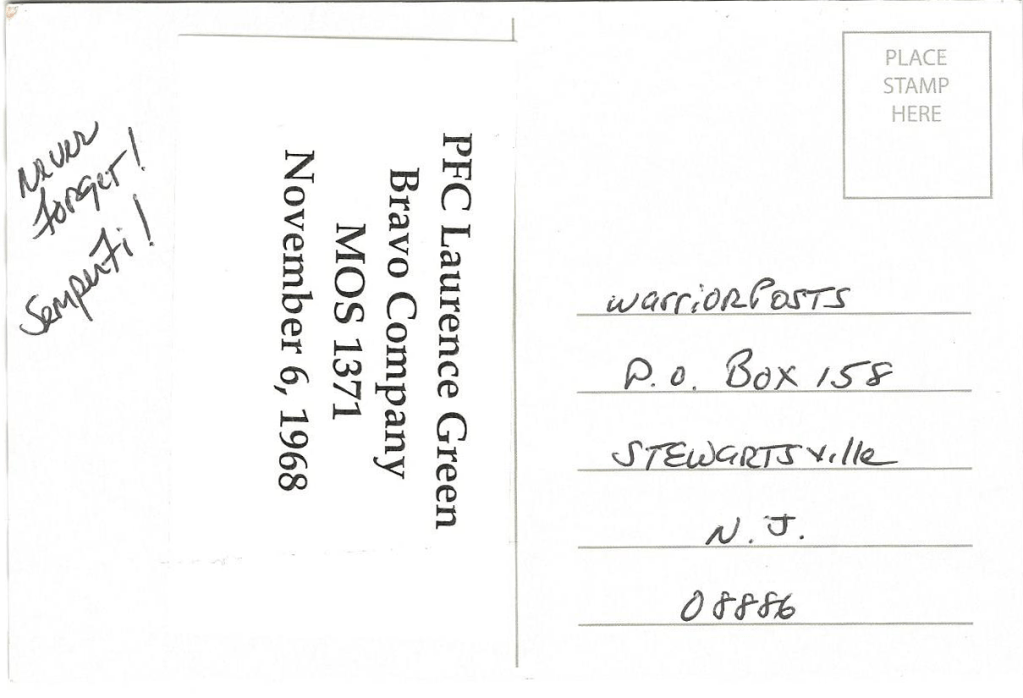 Never
Forget!
Semper Fi!
PFC Laurence Green
Bravo Company
MOS 1371
November 6, 1968
PLACE
STAMP
HERE
WarriorPosts
P.O. Box 158
Stewartsville
N.J.
08886